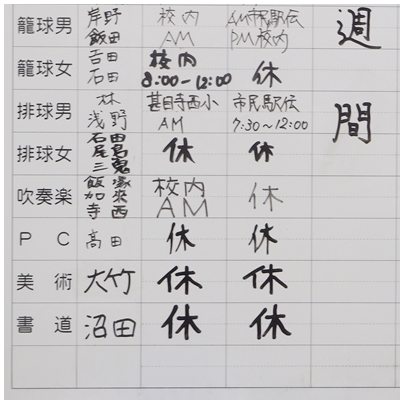 籠球男 岸野 校内 AM市民駅伝 週
飯田 AM PM校内
籠球女 吉田 校内 休
石田 8:00-12:00
排球男 林 甚目寺西小 市民駅伝 間
浅野 AM 7:30～12:00
排球女 石田 休 休
尾島
三鬼
吹奏楽 飯塚 校内 休
加來 AM
寺西
PC 高田 休 休
美術 大竹 休 休
書道 沼田 休 休